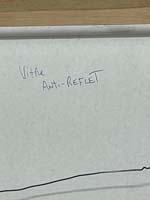 Vitre
Anti-REFLET